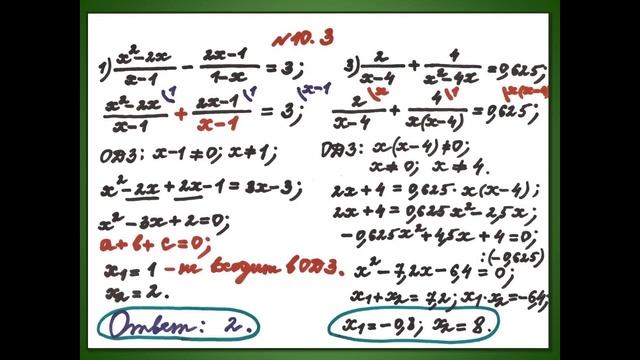 №10.3
1) (x²-2x)/(x-1) - (2x-1)/(1-x) = 3;
(x²-2x)/(x-1) \1 + (2x-1)/(x-1) \1 = 3; \x-1
ОДЗ: x-1≠0; x≠1;
x²-2x+2x-1=3x-3;
x²-3x+2=0;
a+b+c=0;
x₁=1 - не входит в ОДЗ.
x₂=2.
Ответ: 2.
3) 2/(x-4) + 4/(x²-4x) = 0,625;
2/(x-4) \x + 4/(x(x-4)) \1 = 0,625; \x(x-4)
ОДЗ: x(x-4)≠0;
x≠0; x≠4.
2x+4=0,625·x(x-4);
2x+4=0,625x²-2,5x;
-0,625x²+4,5x+4=0;
:(-0,625)
x²-7,2x-6,4=0;
x₁+x₂=7,2; x₁·x₂=-6,4;
x₁=-0,8; x₂=8.